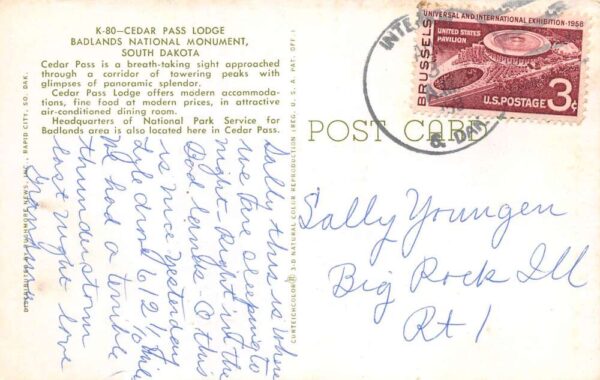 K-80—CEDAR PASS LODGE
BADLANDS NATIONAL MONUMENT,
SOUTH DAKOTA
Cedar Pass is a breath-taking sight approached
through a corridor of towering peaks with
glimpses of panoramic splendor.
Cedar Pass Lodge offers modern accommoda-
tions, fine food at modern prices, in attractive
air-conditioned dining room.
Headquarters of National Park Service for
Badlands area is also located here in Cedar Pass.
RAPID CITY, SO. DAK.
DISTRIBUTED BY RUSHMORE NEWS, INC.,
CURTEICHCOLOR® 3-D NATURAL COLOR REPRODUCTION (REG. U. S. A. PAT. OFF.)
POST CARD
UNIVERSAL AND INTERNATIONAL EXHIBITION 1958
BRUSSELS
UNITED STATES
PAVILION
U.S.POSTAGE 3¢
INTE
S. DAK
Sally this is where
we are sleeping to
night - Right in the
Bad lands - O this
is nice yesterday
Lyle drove 612 ½ mile
We had a terrible
thunderstorm
last night love
Sally Youngen
Big Rock Ill
Rt 1